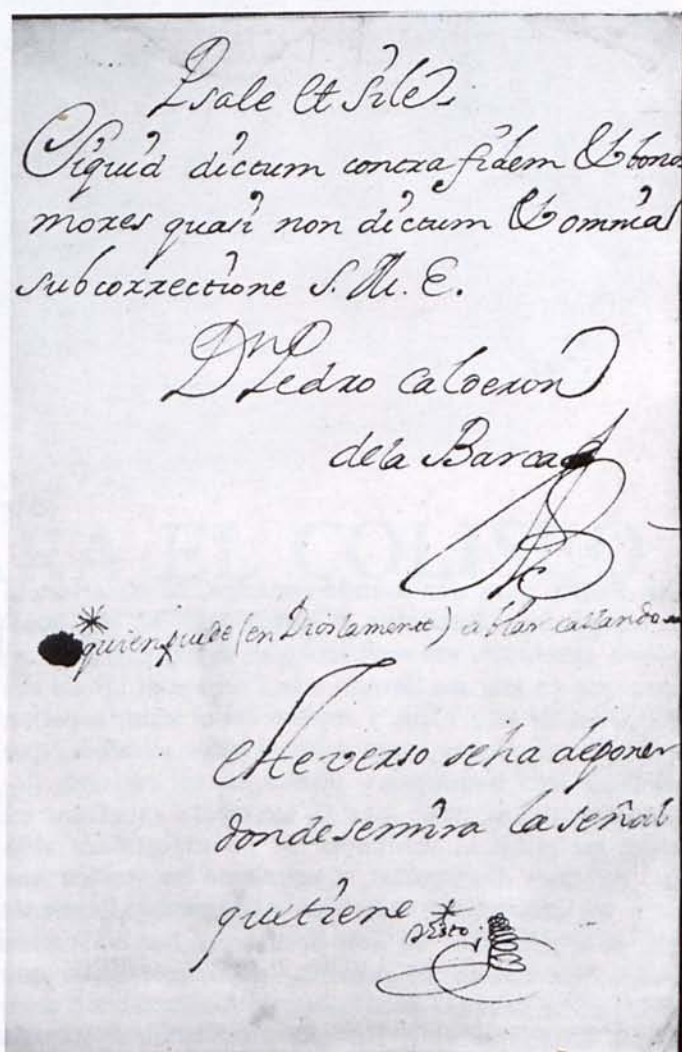 Psale et sile.
Siquid dictum contra fidem et bonos
mores quasi non dictum et omnia
sub correctione S. M. E.
Dn Pedro Calderon
de la Barca
* quien puede (en Dios la mente) ablar callando
Este verso se ha de poner
donde se mira la señal
que tiene *